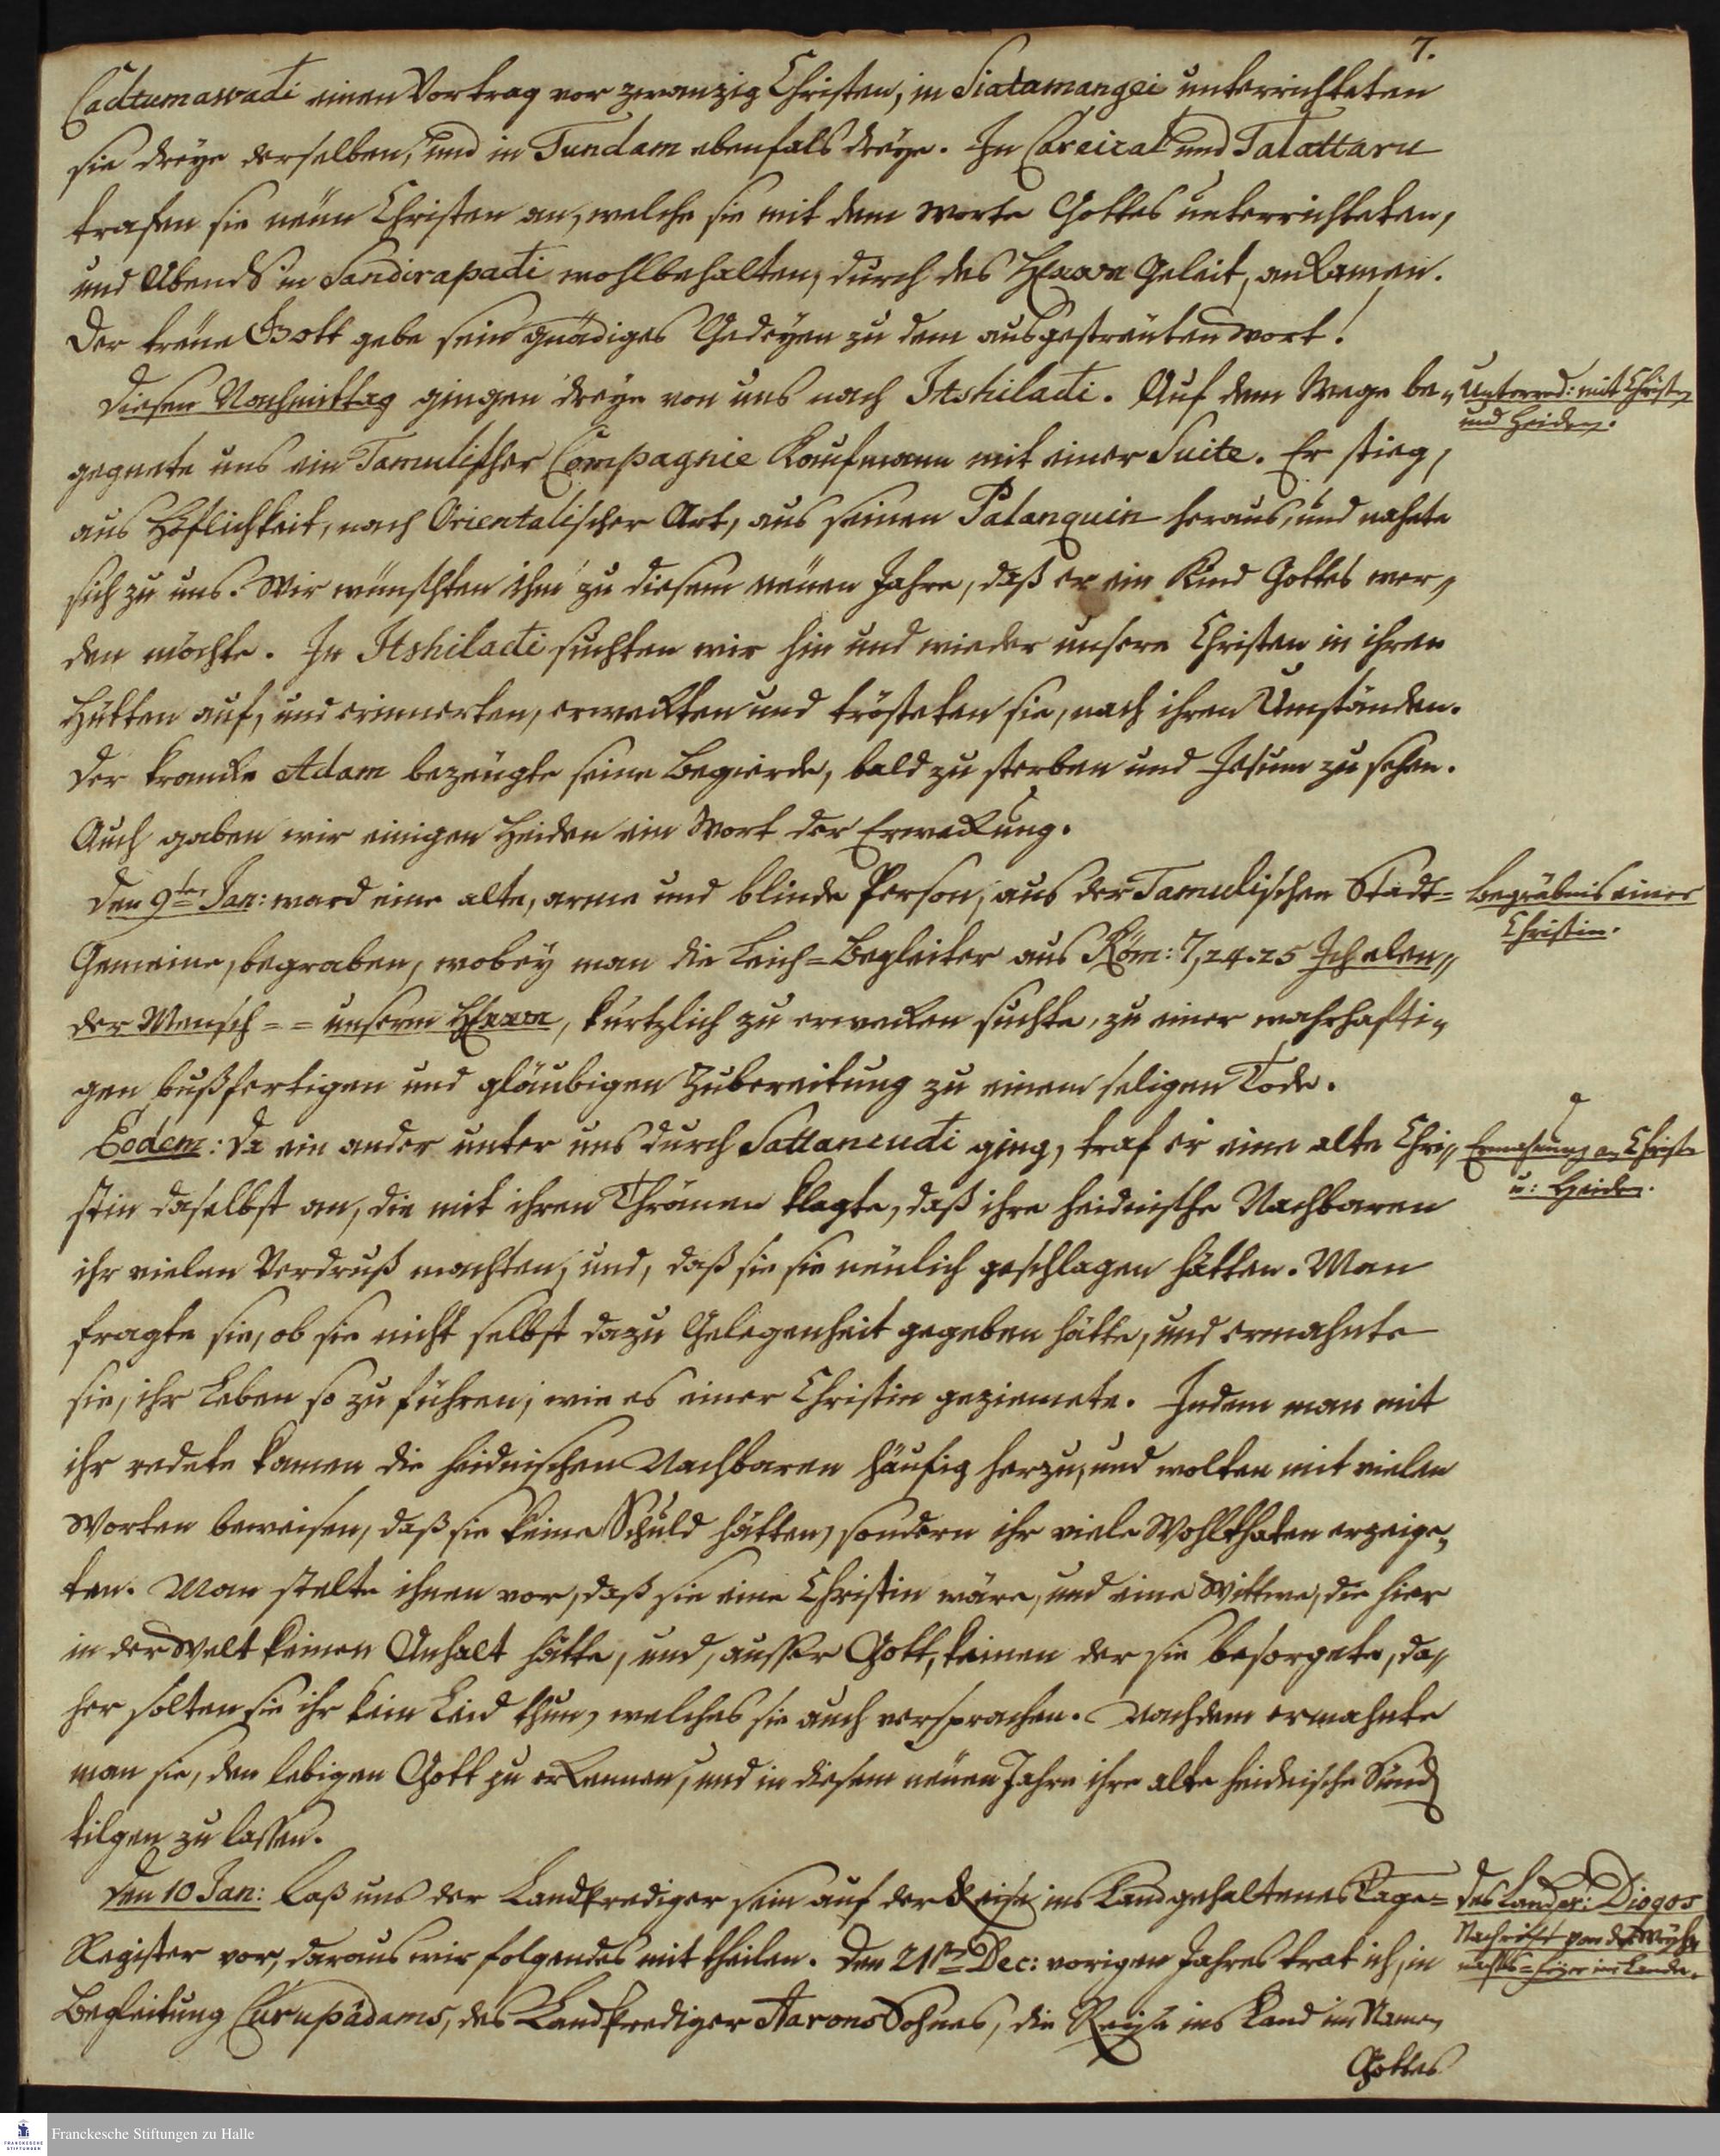 7.
Cadtumawadi einen Vortrag vor zwanzig Christen, in Siatamangei unterrichteten
sie dreye derselben, und in Tundam ebenfals dreye. In Careical und Talattaru
trafen sie neün Christen an, welche sie mit dem Worte Gottes unterrichteten,
und Abends in Sandirapadi wohlbehalten, durch des HErrn Geleit, ankamen.
Der treüe Gott gebe sein gnädiges Gedeyen zu dem ausgestreüten Wort!
Diesen Nachmittag gingen dreye von uns nach Itshiladi. Auf dem Wege be„
Unterred: mit Christen
und Heiden.
gegnete uns ein Tamulischer Compagnie Kaufmann mit einer Suite. Er stieg,
aus Höflichkeit, nach Orientalischer Art, aus seinen Palanquin heraus, und nahete
sich zu uns. Wir wünschten ihm zu diesem neüen Jahre, daß er ein Kind Gottes wer„
den möchte. In Itshiladi suchten wir hin und wieder unsere Christen in ihren
Hütten auf, und erinnerten, erweckten und trösteten sie, nach ihren Umständen.
Der krancke Adam bezeügte seine Begierde, bald zu sterben und Jesum zu sehen.
Auch gaben wir einigen Heiden ein Wort der Erweckung.
Den 9ten Jan: ward eine alte, arme und blinde Person, aus der Tamulischen Stadt=
Begräbnis einer
Christin.
Gemeine, begraben, wobey man die Leich=Begleiter aus Röm: 7,24.25 Ich elen„
der Mensch = = unserm HErrn, kürtzlich zu erwecken suchte, zu einer wahrhafti„
gen bußfertigen und gläubigen Zubereitung zu einem seligen Tode.
Eodem: Da ein ander unter uns durch Sattancudi ging, traf er eine alte Chri„
Ermahnung an Christen
u: Heiden.
stin daselbst an, die mit ihren Thränen klagte, daß ihre heidnische Nachbaren
ihr vielen Verdruß machten, und, daß sie sie neülich geschlagen hätten. Man
fragte sie, ob sie nicht selbst dazu Gelegenheit gegeben hätte, und ermahnte
sie, ihr Leben so zu führen, wie es einer Christin geziemete. Indem man mit
ihr redete kamen die heidnischen Nachbaren häufig herzu, und wolten mit vielen
Worten beweisen, daß sie keine Schuld hätten, sondern ihr viele Wohlthaten erzeige„
ten. Man stelte ihnen vor, daß sie eine Christin wäre, und eine Wittwe, die hier
in der Welt keinen Anhalt hätte, und, ausser Gott, keinen der sie besorgete, da„
her solten sie ihr kein Leid thun, welches sie auch versprachen. Nachdem ermahnte
man sie, den lebigen Gott zu erkennen, und in diesem neüen Jahre ihre alte heidnische Sünden
tilgen zu lassen.
Den 10 Jan: laß uns der Landprediger sein auf der Reise ins Land gehaltenes Tage=
des Landpr: Diogos
Nachricht von der Weyh
nachts=Feyer im Lande.
Register vor, daraus wir folgendes mit theilen. Den 21ten Dec: vorigen Jahres trat ich, in
Begleitung Curupädams, des Landprediger Aarons Sohnes, die Reise ins Land im Namen
Gottes
Franckesche Stiftungen zu Halle